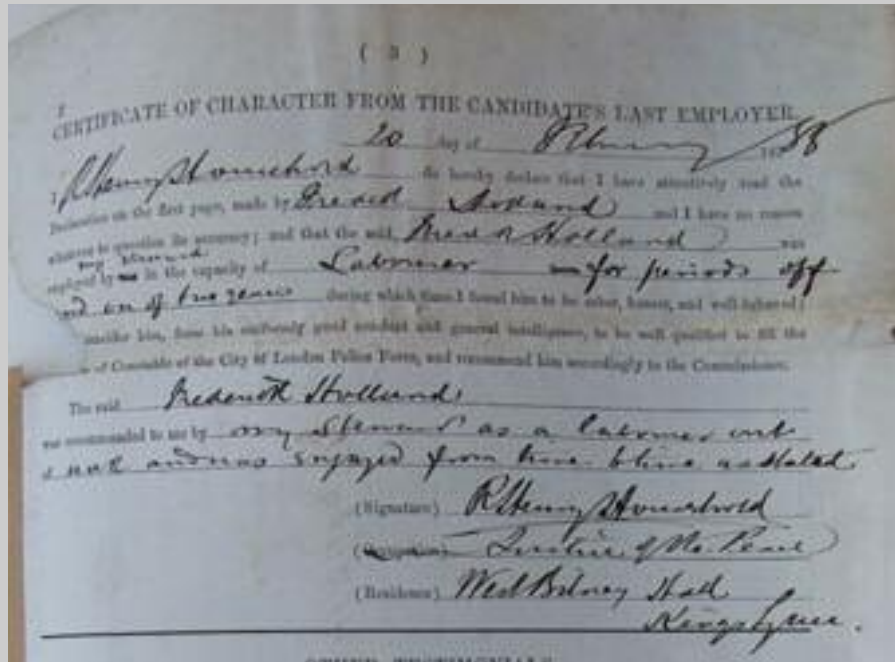 ( 3 )
CERTIFICATE OF CHARACTER FROM THE CANDIDATE'S LAST EMPLOYER.
20 day of 1888
I R Henry Household do hereby declare that I have attentively read the
Declaration on the first page, made by Holland and I have no reason
whatever to question its accuracy; and that the said Holland was
my Steward
employed by in the capacity of Labourer for periods off
and on of two years during which time I found him to be sober, honest, and well-behaved;
consider him, from his uniformly good conduct and general intelligence, to be well qualified to fill the
of Constable of the City of London Police Force, and recommend him accordingly to the Commissioner.
The said Frederick Holland
was recommended to me by my Steward as a labourer
and was engaged from time to time as stated.
(Signature) R Henry Household
(Occupation) Justice of the Peace
(Residence) West Bilney Hall
Kings Lynn.